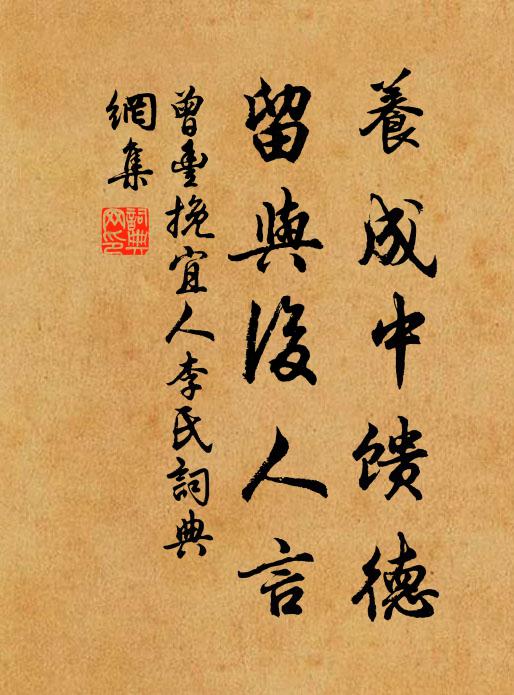 養成中馈德
留與後人言
曾豐挽宜人李氏詞典
網集
詞典網印